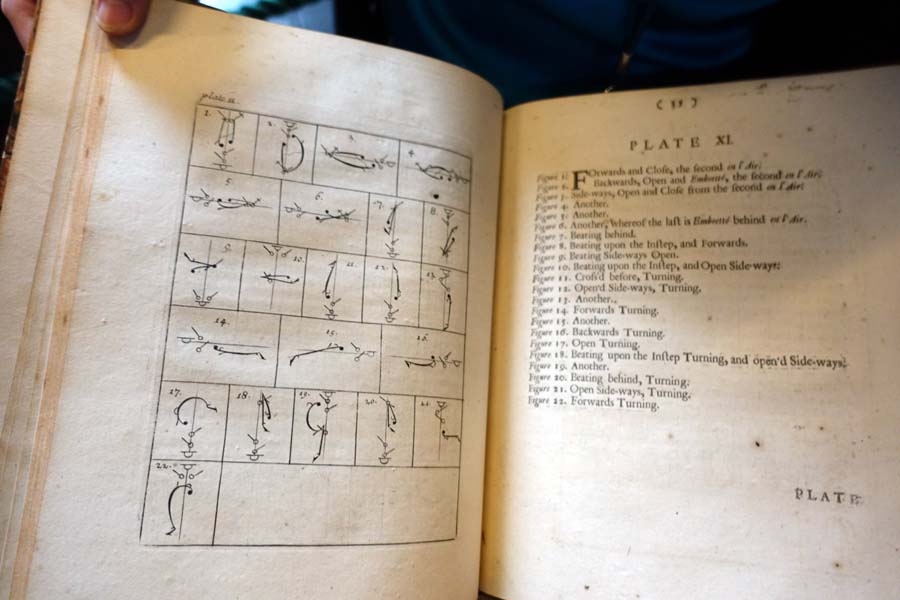 plate 11.
1. 2. 3. 4.
5. 6. 7. 8.
9. 10. 11. 12. 13.
14. 15. 16.
17. 18. 19. 20. 21.
22.
PLATE XI.
Figure 1. FOrwards and Cloſe, the ſecond en l'Air.
Figure 2. Backwards, Open and Emboetté, the ſecond en l'Air.
Figure 3. Side-ways, Open and Cloſe from the ſecond en l'Air.
Figure 4. Another.
Figure 5. Another.
Figure 6. Another, Whereof the laſt is Emboetté behind en l'Air.
Figure 7. Beating behind.
Figure 8. Beating upon the Inſtep, and Forwards.
Figure 9. Beating Side-ways Open.
Figure 10. Beating upon the Inſtep, and Open Side-ways.
Figure 11. Croſs'd before, Turning.
Figure 12. Open'd Side-ways, Turning.
Figure 13. Another.
Figure 14. Forwards Turning.
Figure 15. Another.
Figure 16. Backwards Turning.
Figure 17. Open Turning.
Figure 18. Beating upon the Inſtep Turning, and open'd Side-ways.
Figure 19. Another.
Figure 20. Beating behind, Turning.
Figure 21. Open Side-ways, Turning.
Figure 22. Forwards Turning.
PLATE